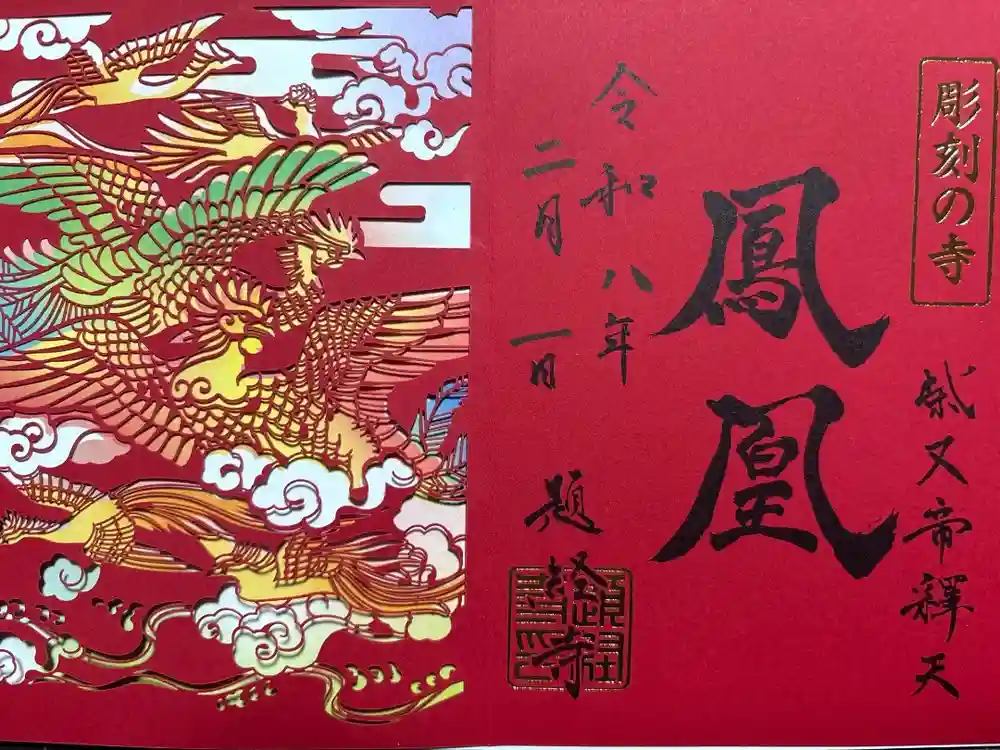 彫刻の寺
柴又帝釋天
鳳凰
令和八年
二月一日
題経寺